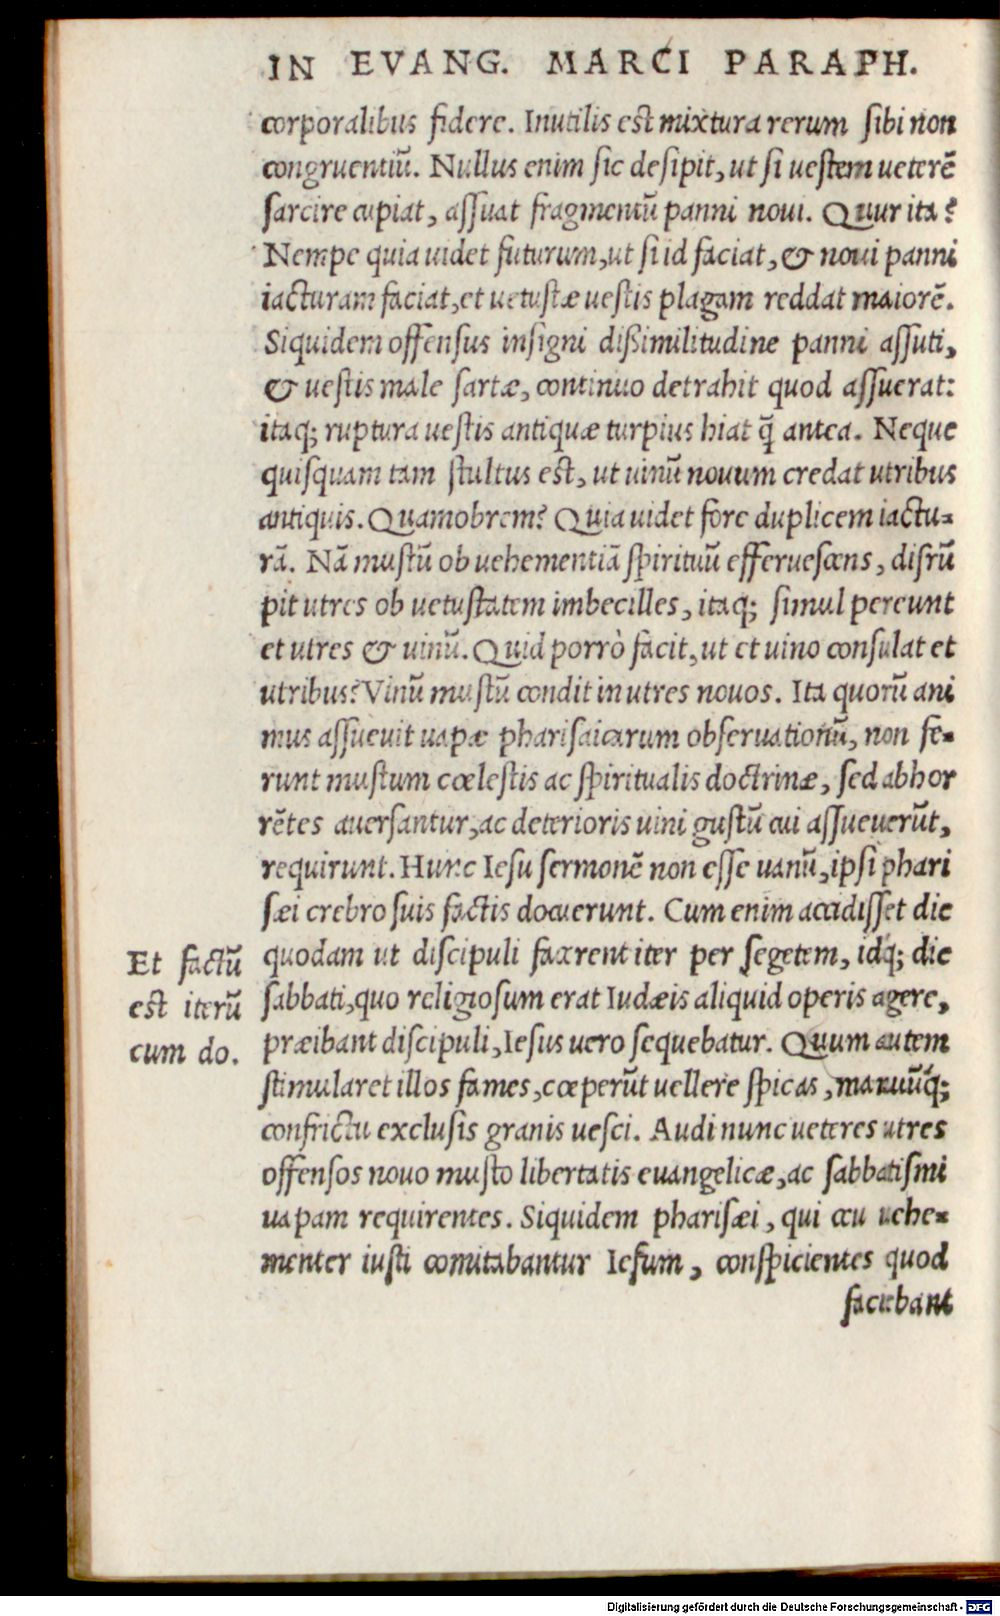 IN EVANG. MARCI PARAPH.
corporalibus fidere. Inutilis est mixtura rerum sibi non
congruentiū. Nullus enim sic desipit, ut si uestem ueterē
sarcire cupiat, assuat fragmentū panni noui. Quur ita?
Nempe quia uidet futurum, ut si id faciat, & noui panni
iacturam faciat, et uetustæ uestis plagam reddat maiorē.
Siquidem offensus insigni dißimilitudine panni assuti,
& uestis male sartæ, continuo detrahit quod assuerat:
itaq; ruptura uestis antiquæ turpius hiat q̄ antea. Neque
quisquam tam stultus est, ut uinū nouum credat utribus
antiquis. Quamobrem? Quia uidet fore duplicem iactu-
rā. Nā mustū ob uehementiā spirituū efferuescens, disrū
pit utres ob uetustatem imbecilles, itaq; simul pereunt
et utres & uinū. Quid porrò facit, ut et uino consulat et
utribus? Vinū mustū condit in utres nouos. Ita quorū ani
mus assueuit uapæ pharisaicarum obseruationū, non fe-
runt mustum cœlestis ac spiritualis doctrinæ, sed abhor
rētes auersantur, ac deterioris uini gustū cui assueuerūt,
requirunt. Hunc Iesu sermonē non esse uanū, ipsi phari
sæi crebro suis factis docuerunt. Cum enim accidisset die
quodam ut discipuli facerent iter per segetem, idq; die
sabbati, quo religiosum erat Iudæis aliquid operis agere,
præibant discipuli, Iesus uero sequebatur. Quum autem
stimularet illos fames, cœperūt uellere spicas, manuūq;
confrictu exclusis granis uesci. Audi nunc ueteres utres
offensos nouo musto libertatis euangelicæ, ac sabbatismi
uapam requirentes. Siquidem pharisæi, qui ceu uehe-
menter iusti comitabantur Iesum, conspicientes quod
faciebant
Et factū
est iterū
cum do.
Digitalisierung gefördert durch die Deutsche Forschungsgemeinschaft - DFG